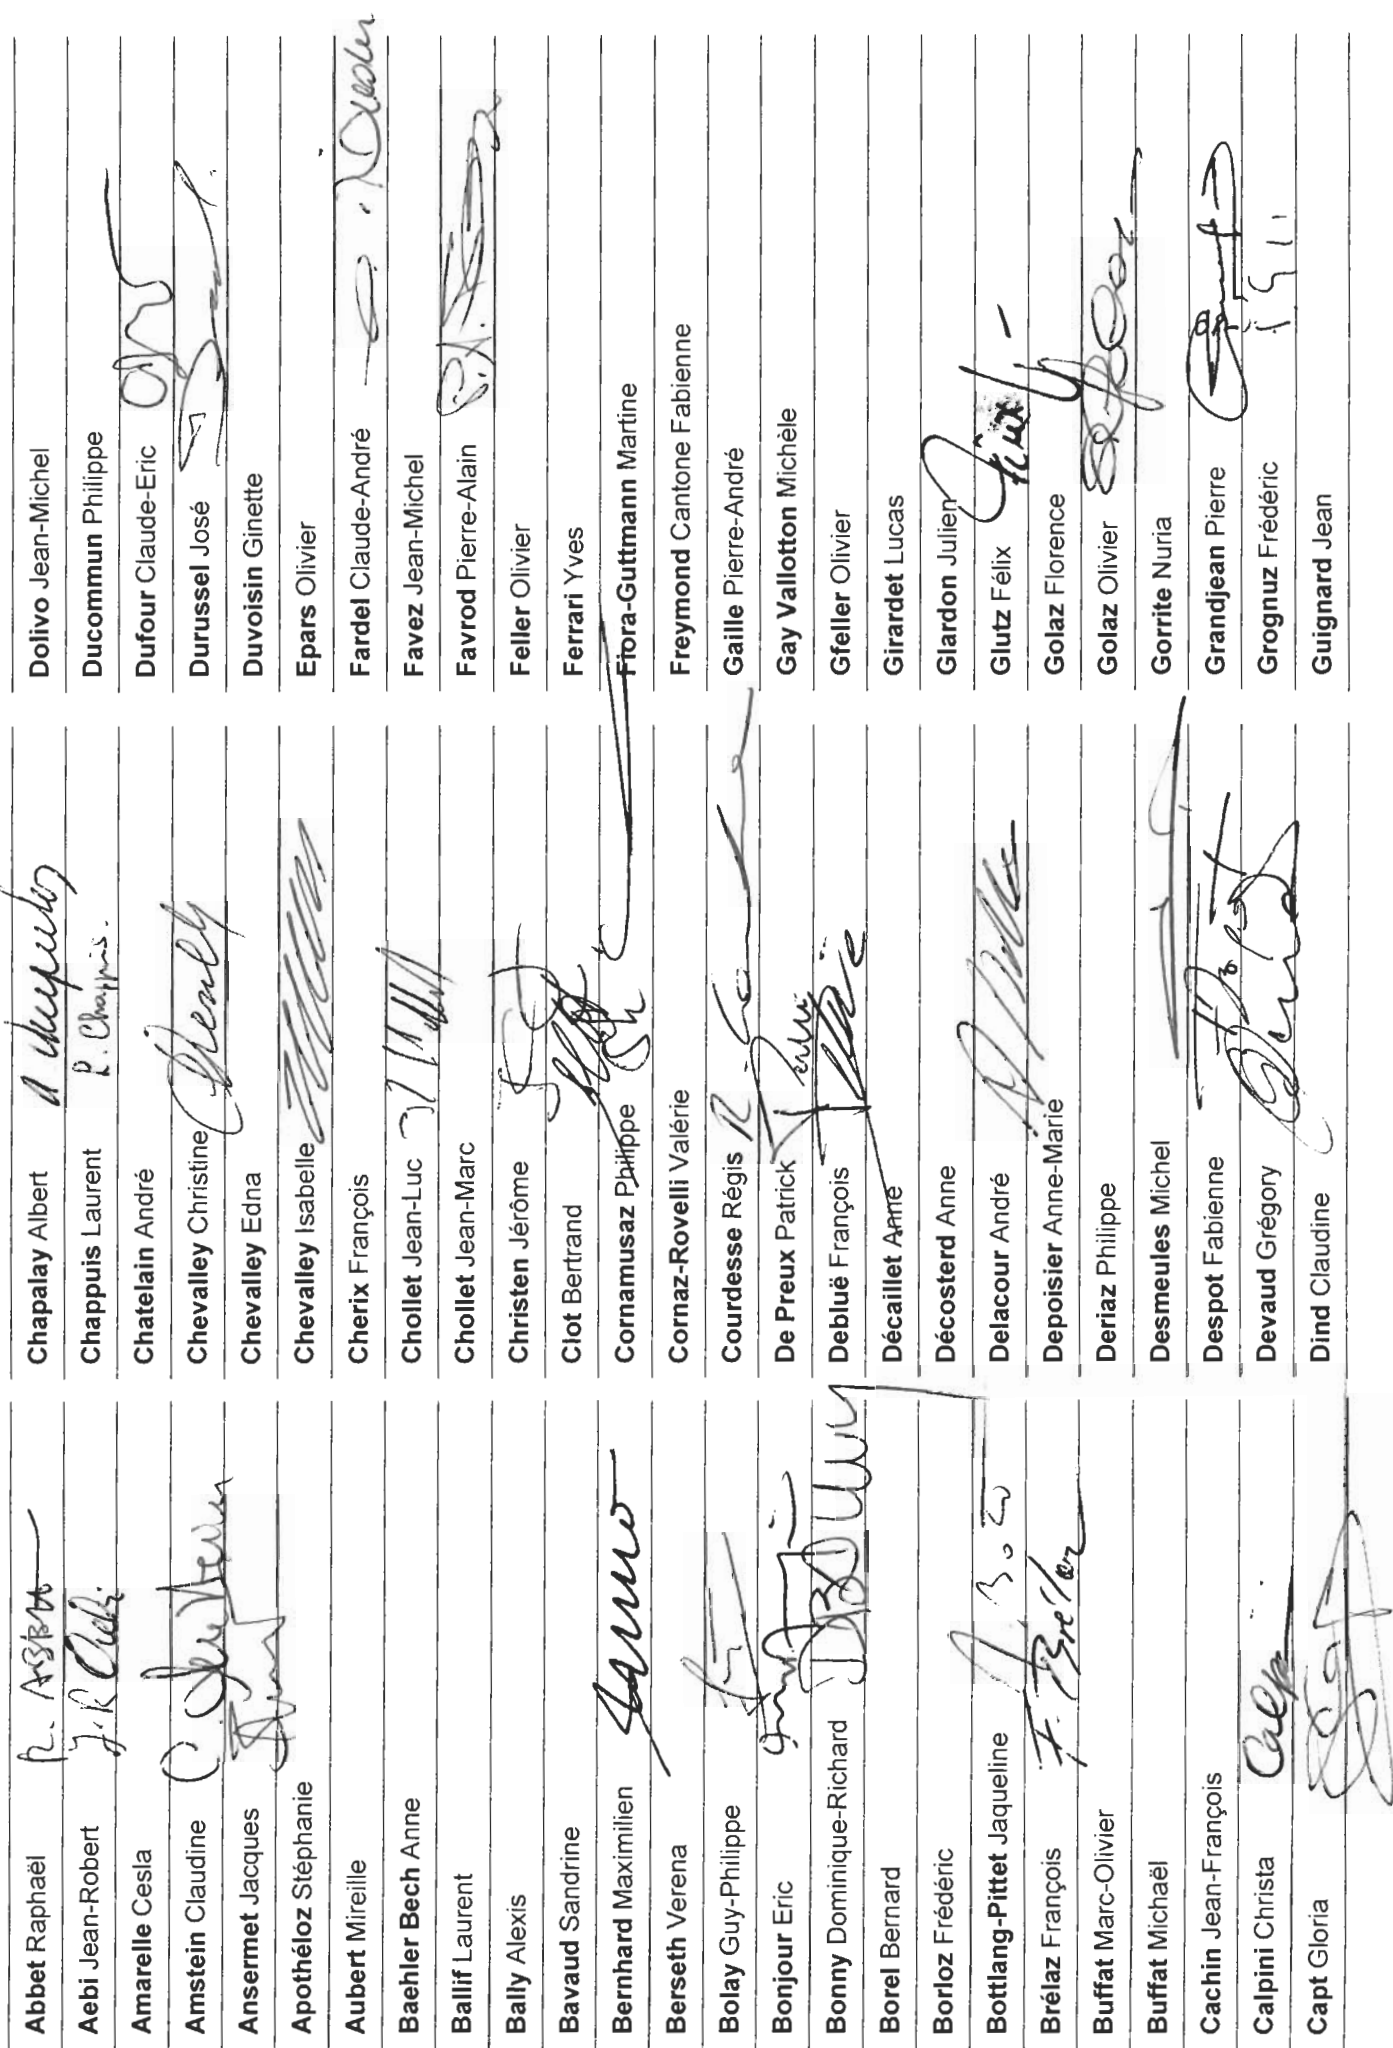 Abbet Raphaël R. Abbet
Aebi Jean-Robert J. R. Aebi
Amarelle Cesla
Amstein Claudine C. Amstein
Ansermet Jacques
Apothéloz Stéphanie
Aubert Mireille
Baehler Bech Anne
Ballif Laurent
Bally Alexis
Bavaud Sandrine
Bernhard Maximilien
Berseth Verena
Bolay Guy-Philippe
Bonjour Eric
Bonny Dominique-Richard
Borel Bernard
Borloz Frédéric
Bottlang-Pittet Jaqueline
Brélaz François F. Brélaz
Buffat Marc-Olivier
Buffat Michaël
Cachin Jean-François
Calpini Christa
Capt Gloria
Chapalay Albert
Chappuis Laurent L. Chappuis.
Chatelain André
Chevalley Christine
Chevalley Edna
Chevalley Isabelle
Cherix François
Chollet Jean-Luc
Chollet Jean-Marc
Christen Jérôme
Clot Bertrand
Cornamusaz Philippe
Cornaz-Rovelli Valérie
Courdesse Régis
De Preux Patrick
Debluë François
Décaillet Anne
Décosterd Anne
Delacour André
Depoisier Anne-Marie
Deriaz Philippe
Desmeules Michel
Despot Fabienne
Devaud Grégory
Dind Claudine
Dolivo Jean-Michel
Ducommun Philippe
Dufour Claude-Eric
Durussel José
Duvoisin Ginette
Epars Olivier
Fardel Claude-André
Favez Jean-Michel
Favrod Pierre-Alain
Feller Olivier
Ferrari Yves
Fiora-Guttmann Martine
Freymond Cantone Fabienne
Gaille Pierre-André
Gay Vallotton Michèle
Gfeller Olivier
Girardet Lucas
Glardon Julien
Glutz Félix
Golaz Florence
Golaz Olivier
Gorrite Nuria
Grandjean Pierre
Grognuz Frédéric
Guignard Jean